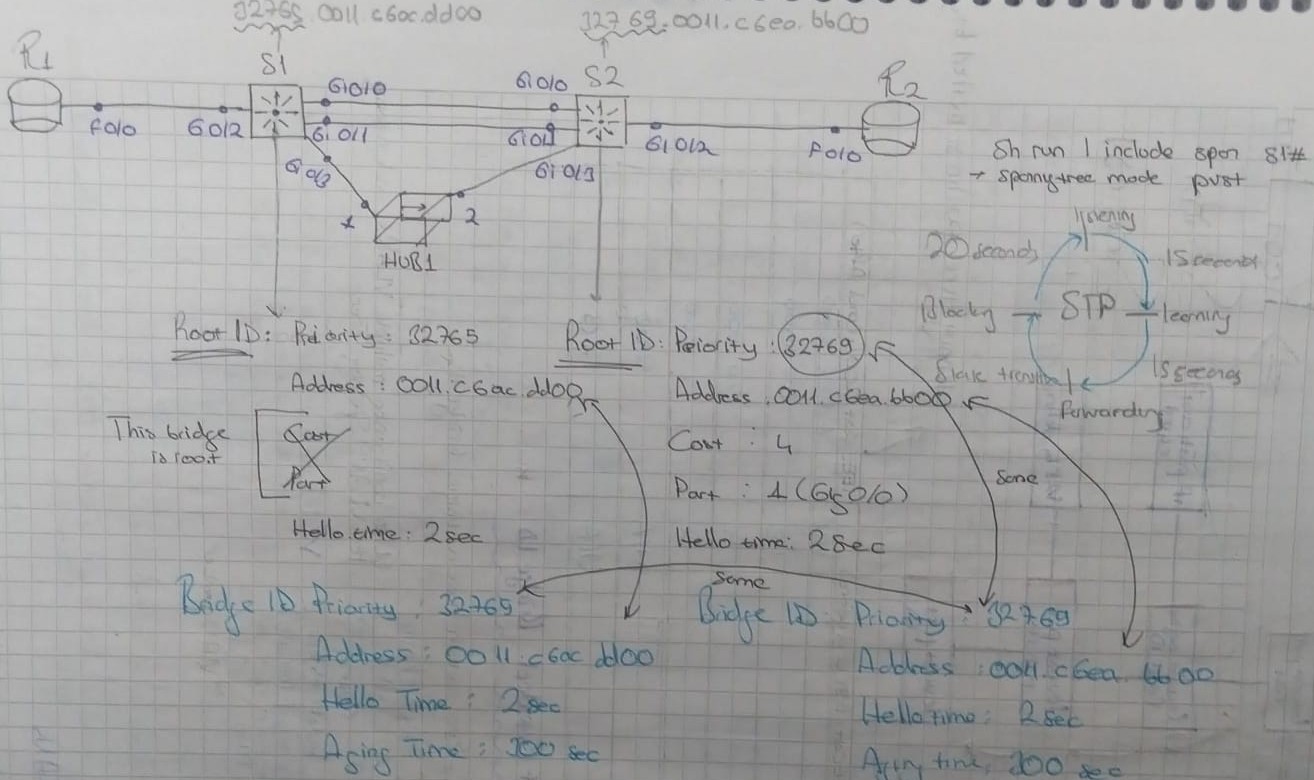 32765.0011.c6ac.dd00
32769.0011.c6ea.bb00
R1
S1
S2
R2
Gi0/0
Gi0/0
f0/0
G0/2
Gi0/1
Gi0/1
Gi0/2
F0/0
Gi0/3
Gi0/3
1
2
HUB1
Sh run | include span S1#
→ spannytree mode pvst
listening
20 seconds
15 seconds
Blocky
STP
learning
15 seconds
Forwarding
Root ID: Priority: 32765
Address: 0011.c6ac.dd00
This bridge
is root
Cost
Port
Hello time: 2sec
Root ID: Periority: 32769
Address.0011.c6ea.bb00
Cost: 4
Port: 1(Gi0/0)
Hello time: 2sec
Same
Same
Bridge ID Priority. 32769
Address: 0011.c6ac dd00
Hello Time: 2sec
Aging Time: 300 sec
Bridge ID Priority: 32769
Address: 0011.c6ea.bb00
Hello time: 2sec
Aging time 300 sec